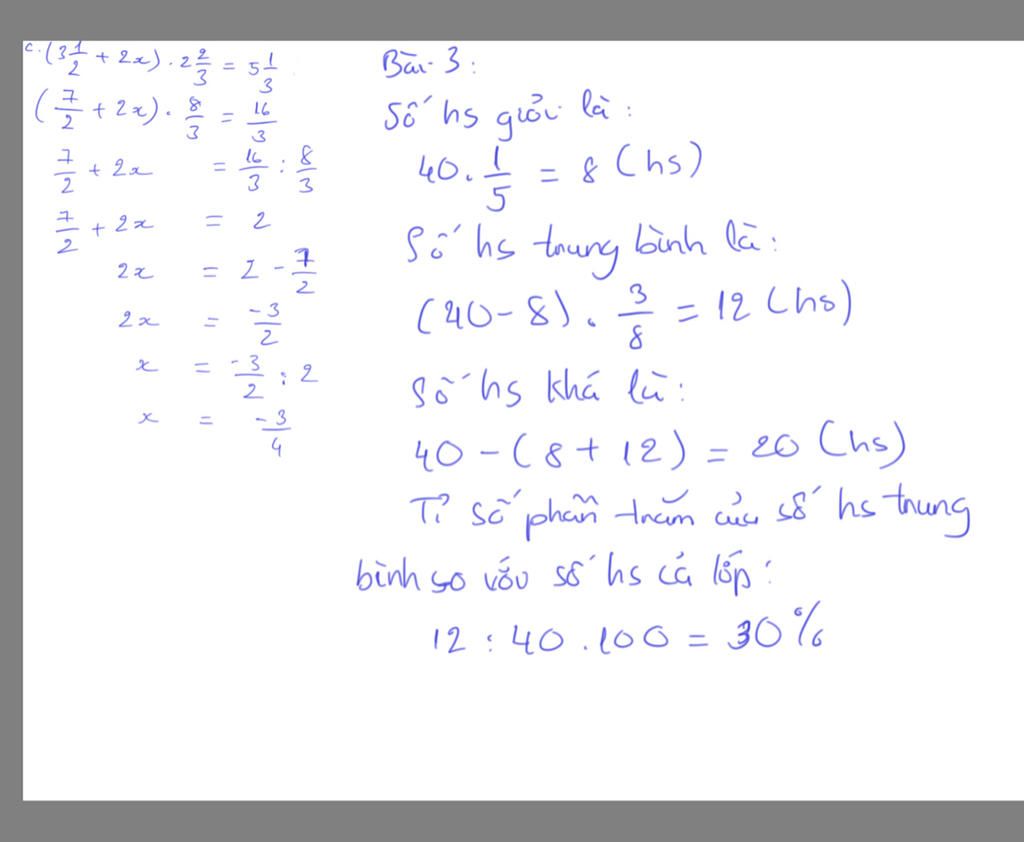 c. (3 1/2 + 2x) . 2 2/3 = 5 1/3
(7/2 + 2x) . 8/3 = 16/3
7/2 + 2x = 16/3 : 8/3
7/2 + 2x = 2
2x = 2 - 7/2
2x = -3/2
x = -3/2 : 2
x = -3/4
Bài 3:
Số hs giỏi là:
40 . 1/5 = 8 (hs)
Số hs trung bình là:
(40 - 8) . 3/8 = 12 (hs)
Số hs khá là:
40 - (8 + 12) = 20 (hs)
Tỉ số phần trăm của số hs trung
bình so với số hs cả lớp:
12 : 40 . 100 = 30%